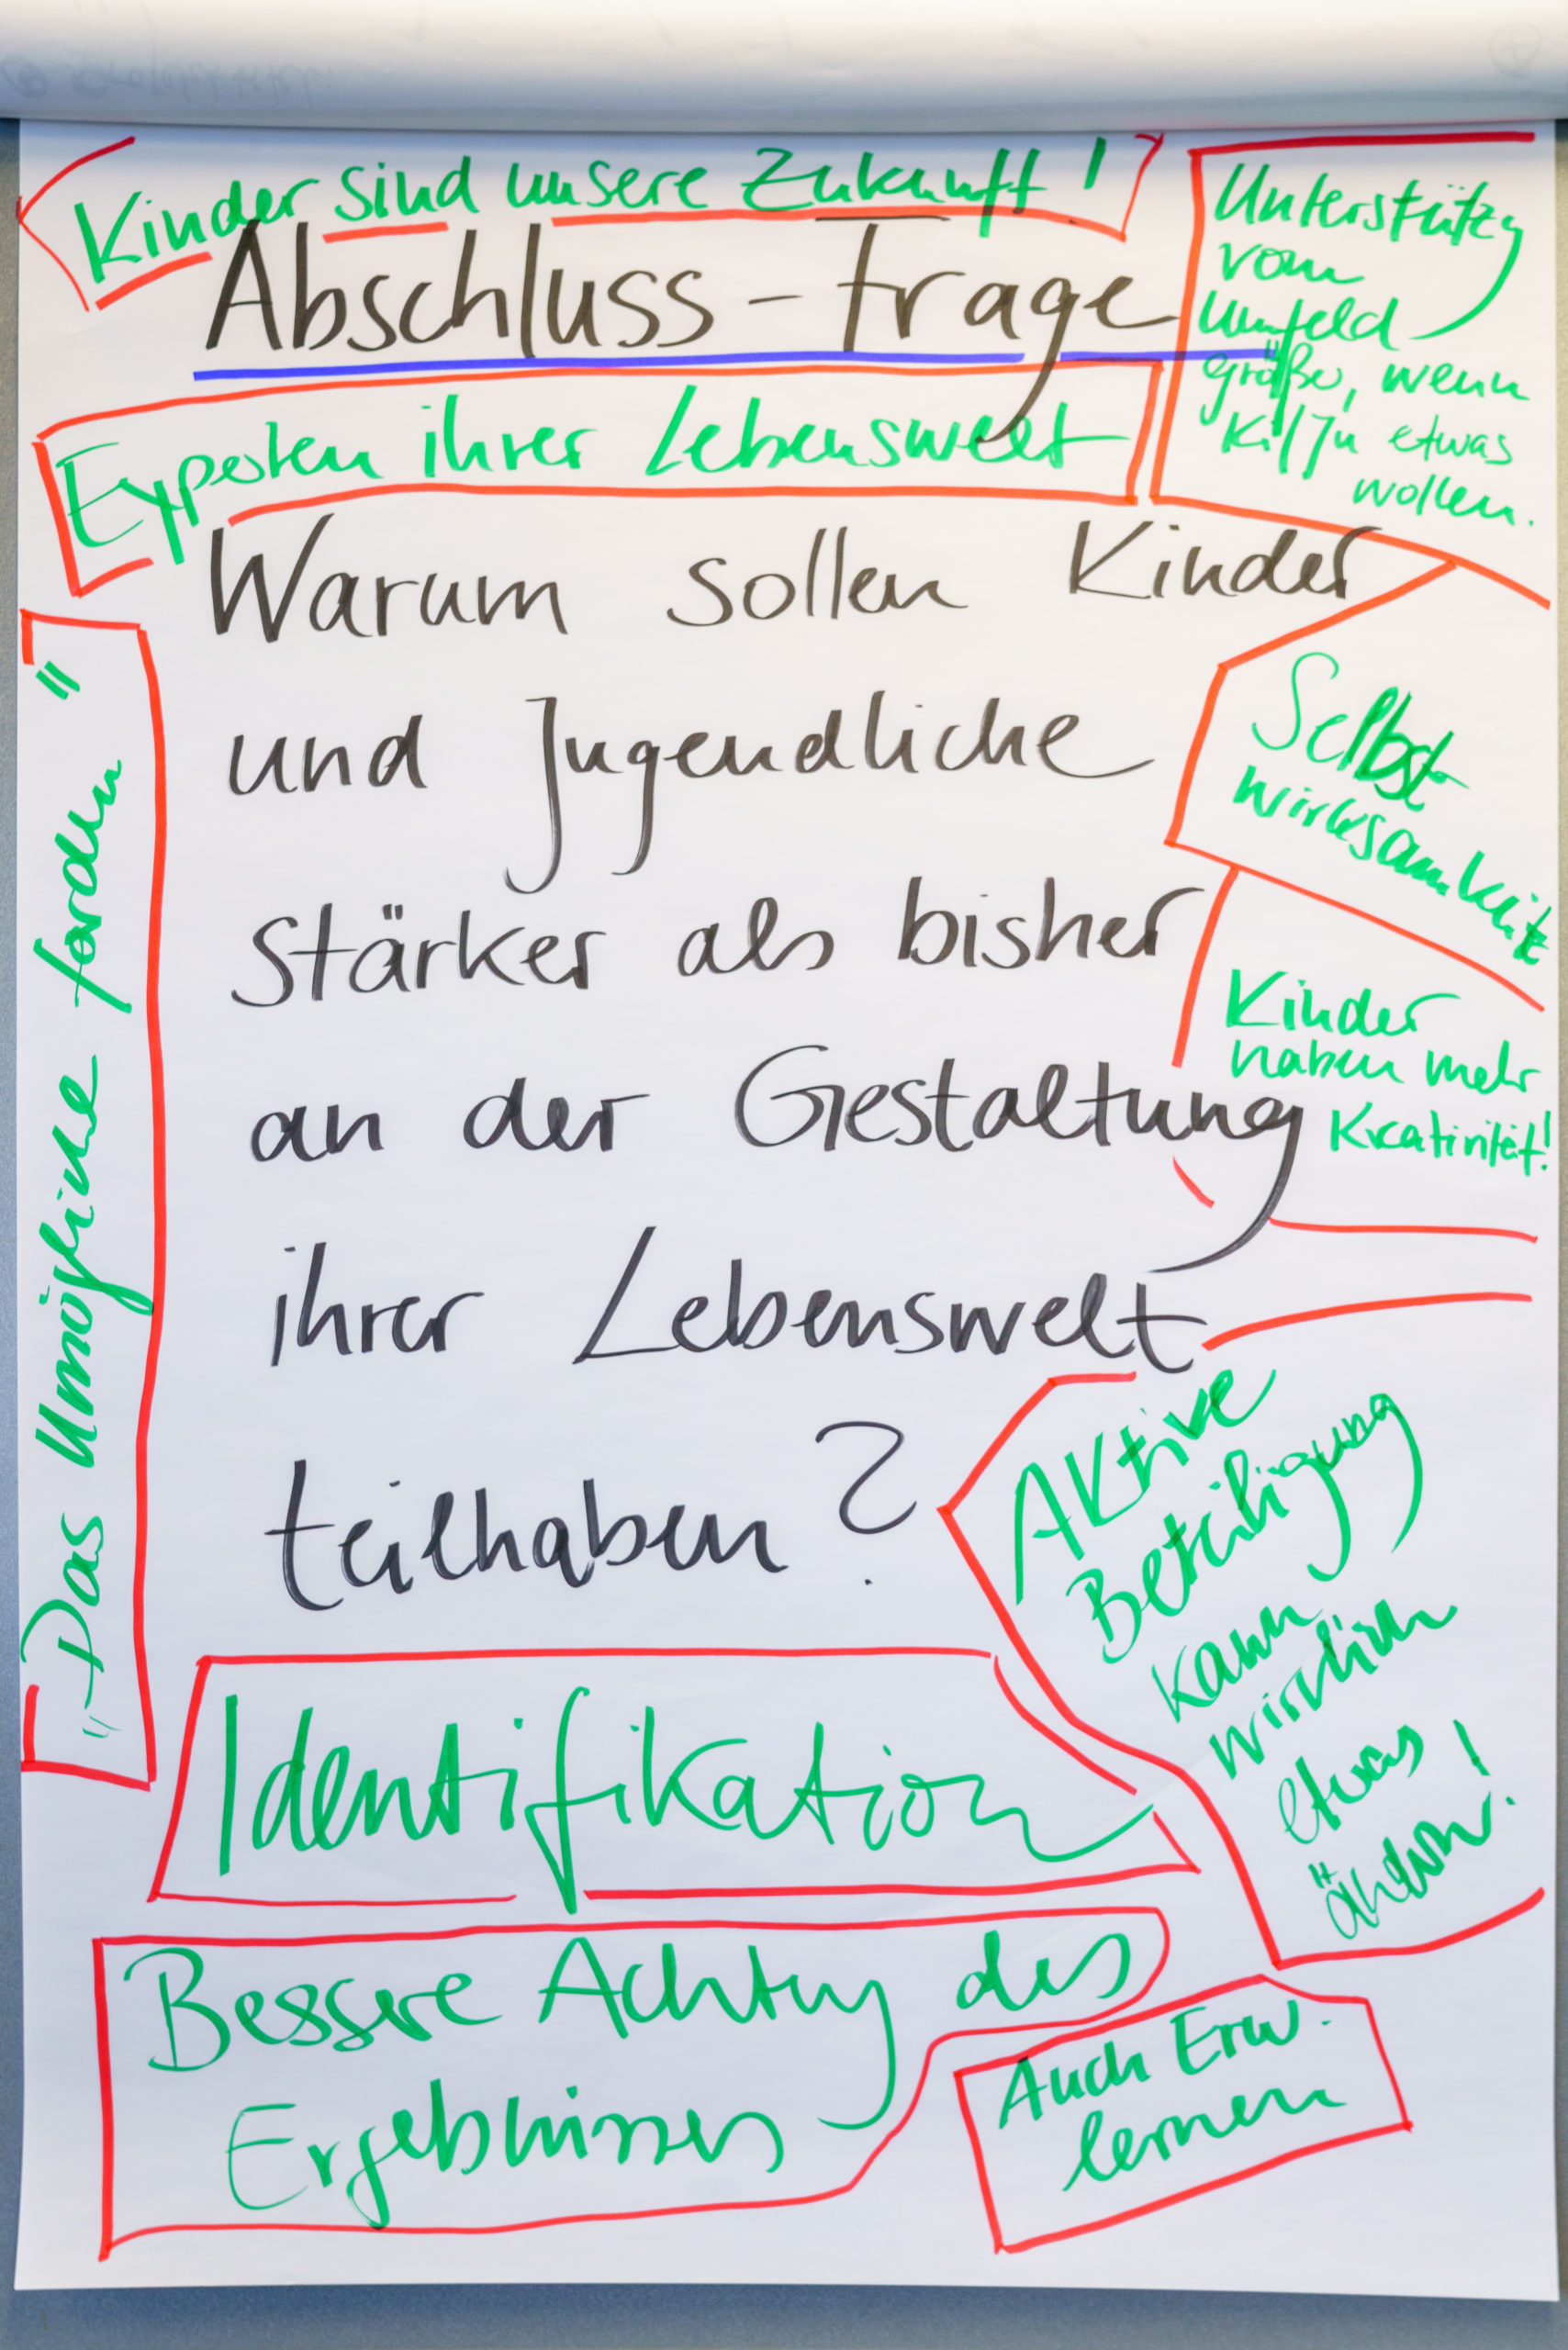 Kinder sind unsere Zukunft!
Abschluss-frage
Unterstützg
vom
Umfeld
größer, wenn
Ki/Ju etwas
wollen.
Experten ihrer Lebenswelt
Warum sollen Kinder
und Jugendliche
stärker als bisher
an der Gestaltung
ihrer Lebenswelt
teilhaben?
Selbst
wirksamkeit
Kinder
haben mehr
Kreativität!
"Das Unmögliche fordern"
Aktive
Beteiligung
kann
wirklich
etwas
ändern!
Identifikation
Bessere Achtung des
Ergebnisses
Auch Erw.
lernen